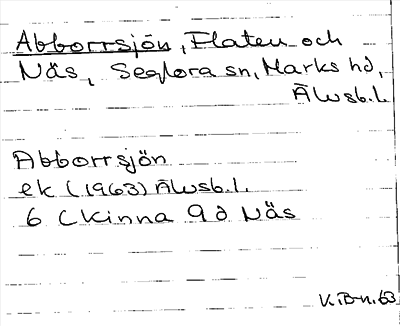 Abborrsjön, Flaten och
Näs, Seglora sn, Marks hd,
Älvsb.l.
Abborrsjön
ek (1963) Älvsb.l.
6 C Kinna 9 d Näs
V.B-n. 63